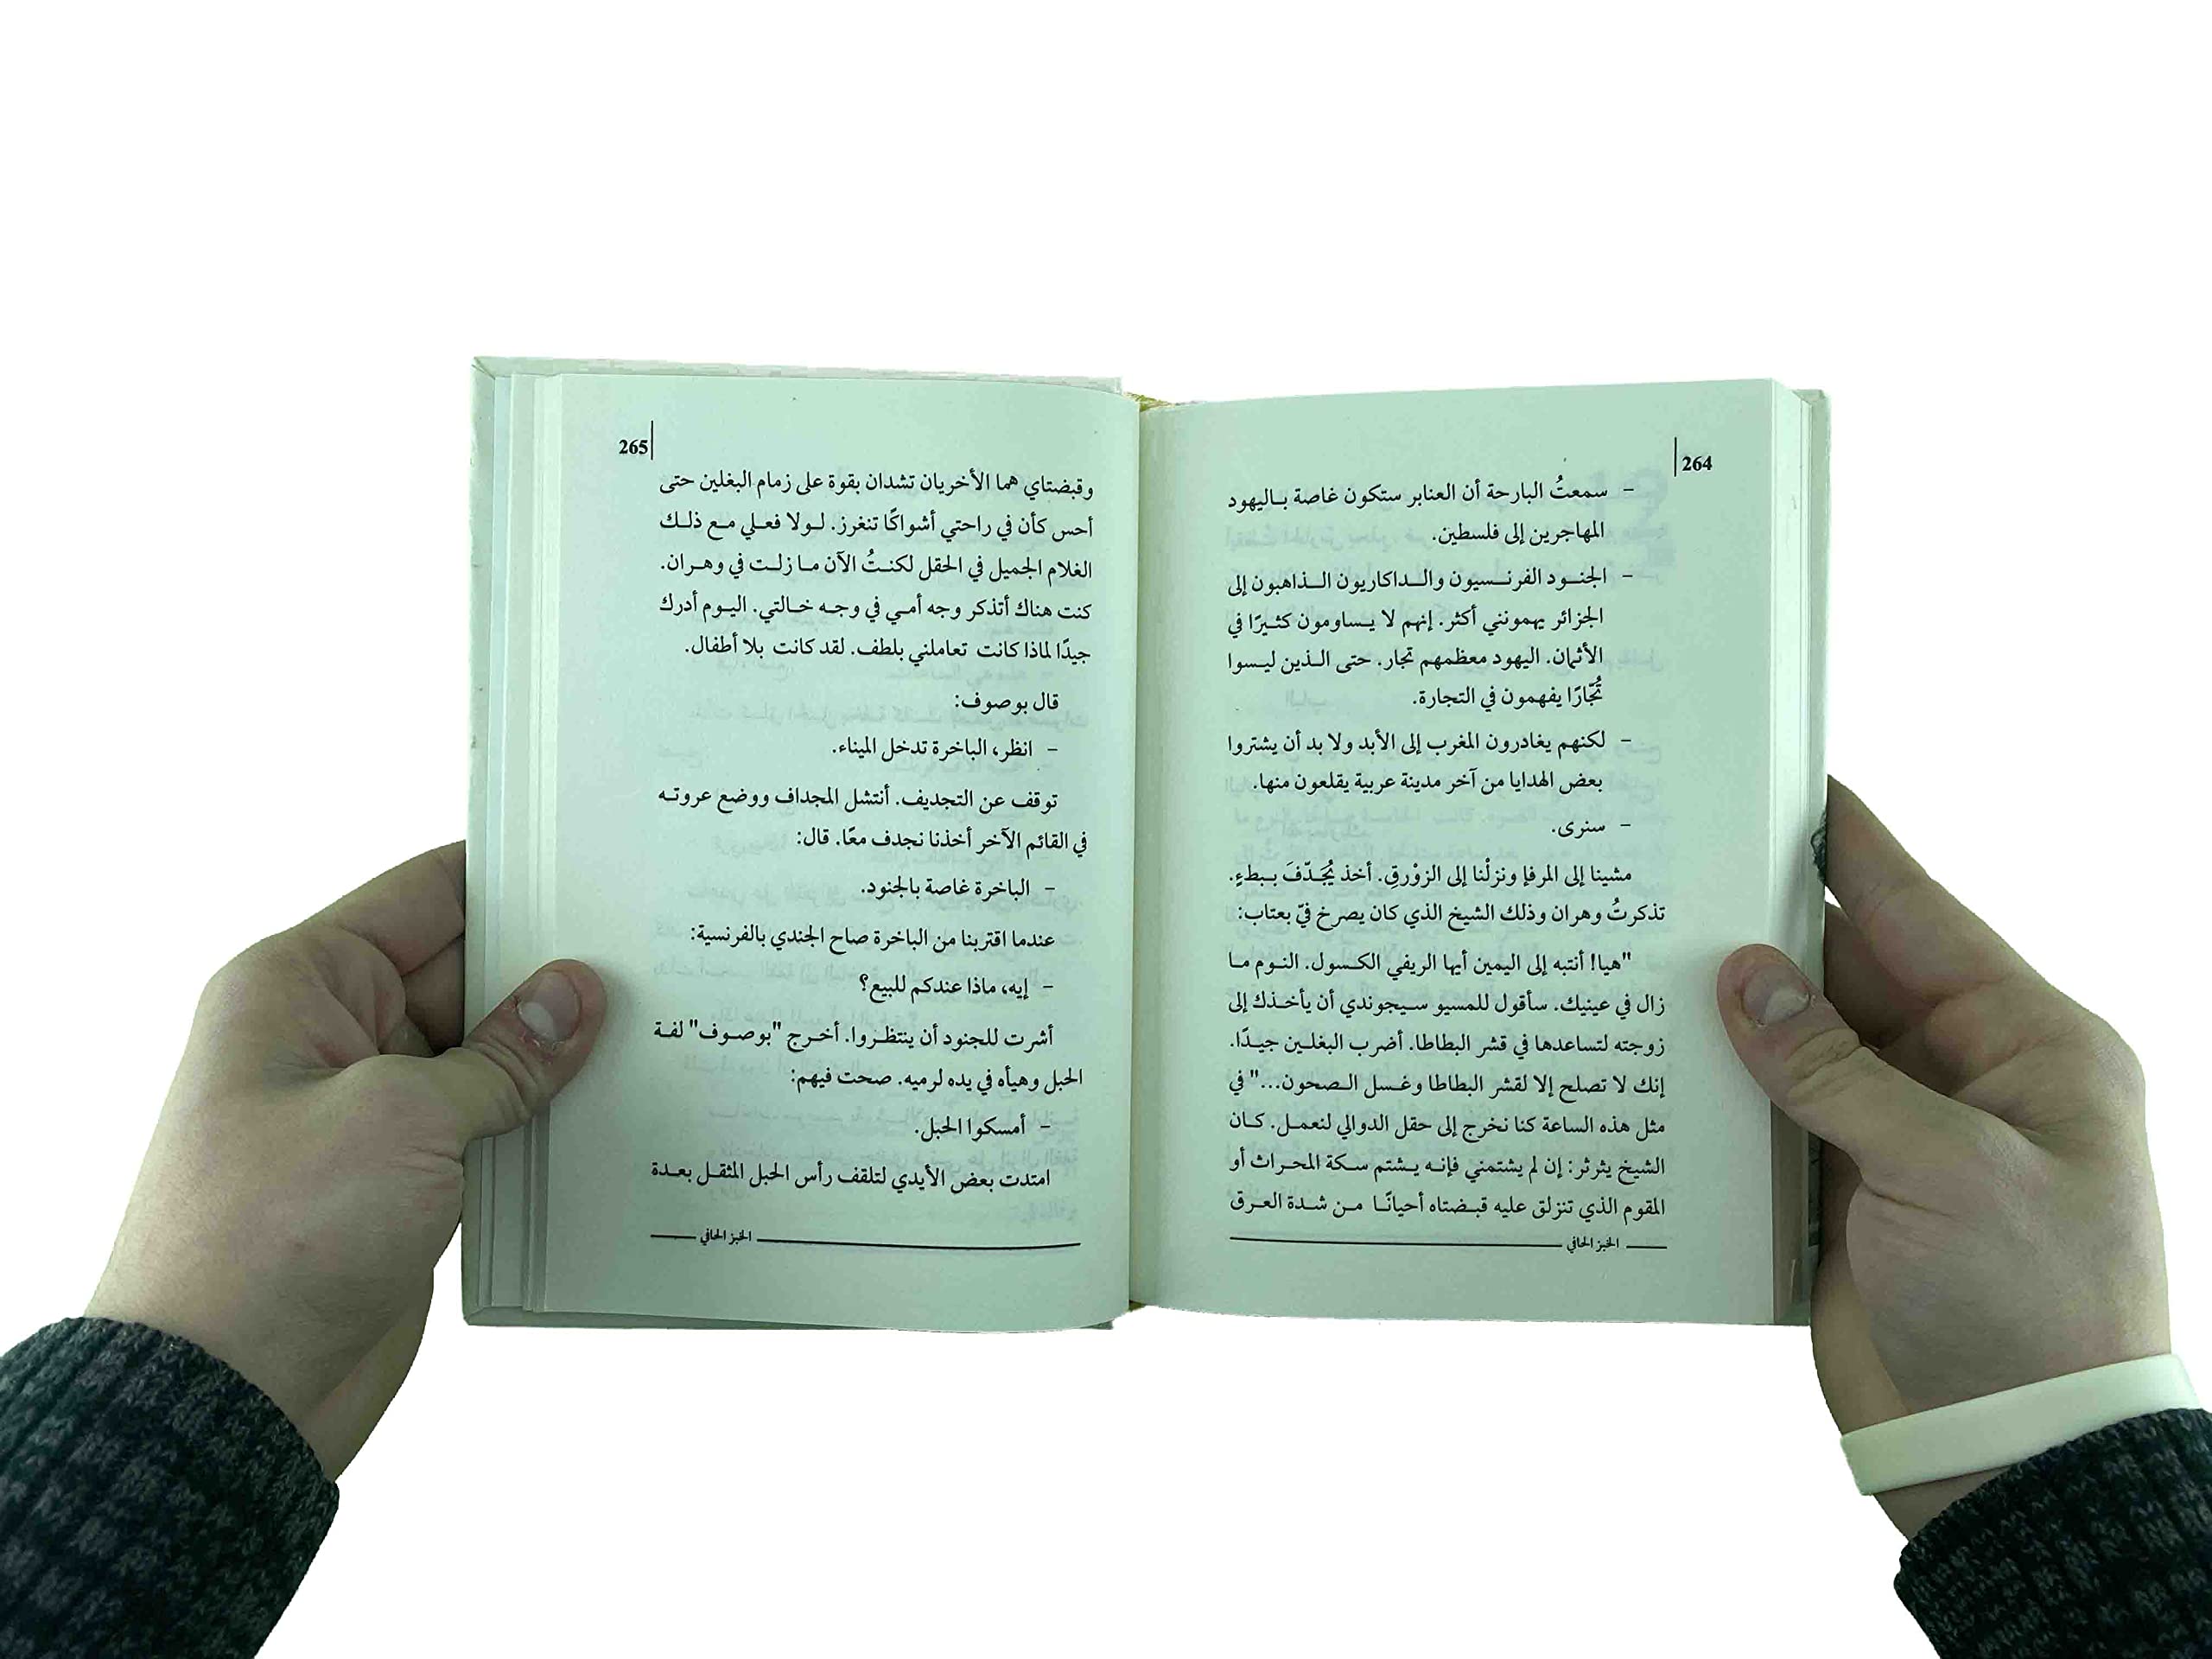 264
– سمعتُ البارحة أن العنابر ستكون غاصة بـاليهود
المهاجرين إلى فلسطين.
– الجنـود الفرنـسيون والـداكاريون الـذاهبون إلى
الجزائر يهمونني أكثر. إنهم لا يـساومون كثـيرًا في
الأثمان. اليهود معظمهم تجار. حتى الـذين ليـسوا
تُجّارًا يفهمون في التجارة.
– لكنهم يغادرون المغرب إلى الأبد ولا بد أن يشتروا
بعض الهدايا من آخر مدينة عربية يقلعون منها.
– سنرى.
مشينا إلى المرفإ ونزلْنا إلى الزوْرقِ. أخذ يُجَدّفَ بـبطءٍ.
تذكرتُ وهران وذلك الشيخ الذي كان يصرخ فيّ بعتاب:
"هيا! أنتبه إلى اليمين أيها الريفي الكـسول. النـوم مـا
زال في عينيك. سأقول للمسيو سـيجوندي أن يأخـذك إلى
زوجته لتساعدها في قشر البطاطا. أضرب البغلـين جيـدًا.
إنك لا تصلح إلا لقشر البطاطا وغـسل الـصحون..." في
مثل هذه الساعة كنا نخرج إلى حقل الدوالي لنعمـل. كـان
الشيخ يثرثر: إن لم يشتمني فإنـه يـشتم سـكة المحـراث أو
المقوم الذي تنزلق عليه قبـضتاه أحيانًـا مـن شـدة العـرق
الخبز الحافي
265
وقبضتاي هما الأخريان تشدان بقوة على زمام البغلين حتى
أحس كأن في راحتي أشواكًا تنغرز. لـولا فعـلي مـع ذلـك
الغلام الجميل في الحقل لكنـتُ الآن مـا زلـت في وهـران.
كنت هناك أتذكر وجه أمـي في وجـه خـالتي. اليـوم أدرك
جيدًا لماذا كانت تعاملني بلطف. لقد كانت بلا أطفال.
قال بوصوف:
– انظر، الباخرة تدخل الميناء.
توقف عن التجديف. أنتشل المجداف ووضع عروتـه
في القائم الآخر أخذنا نجدف معًا. قال:
– الباخرة غاصة بالجنود.
عندما اقتربنا من الباخرة صاح الجندي بالفرنسية:
– إيه، ماذا عندكم للبيع؟
أشرت للجنود أن ينتظـروا. أخـرج "بوصـوف" لفـة
الحبل وهيأه في يده لرميه. صحت فيهم:
– أمسكوا الحبل.
امتدت بعض الأيدي لتلقف رأس الحبل المثقـل بعـدة
الخبز الحافي